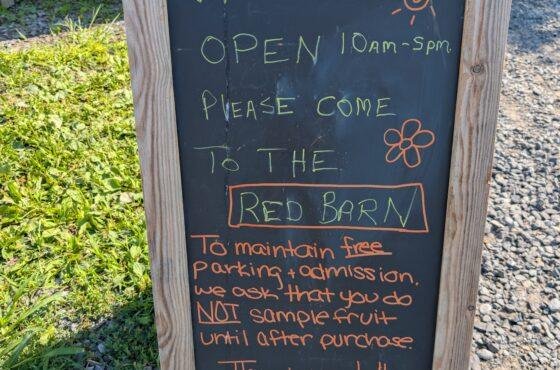 OPEN 10AM-5PM
PLEASE COME
TO THE
RED BARN
To maintain free
parking + admission,
we ask that you do
NOT sample fruit
until after purchase.